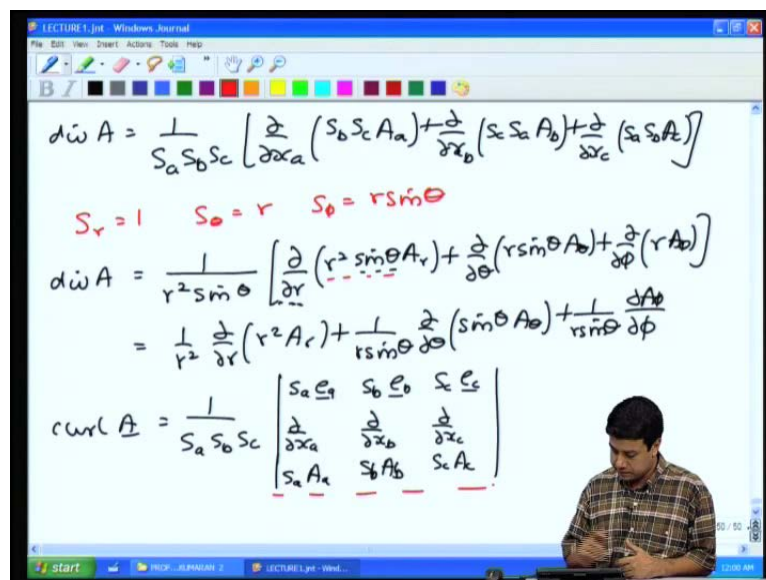 LECTURE1.jnt - Windows Journal
File Edit View Insert Actions Tools Help
B I
div A = 1/(S_a S_b S_c) [∂/∂x_a (S_b S_c A_a) + ∂/∂x_b (S_c S_a A_b) + ∂/∂x_c (S_a S_b A_c)]
S_r = 1 S_θ = r S_φ = r sin θ
div A = 1/(r² sin θ) [∂/∂r (r² sin θ A_r) + ∂/∂θ (r sin θ A_θ) + ∂/∂φ (r A_φ)]
= 1/r² ∂/∂r (r² A_r) + 1/(r sin θ) ∂/∂θ (sin θ A_θ) + 1/(r sin θ) ∂A_φ/∂φ
curl A = 1/(S_a S_b S_c) | S_a e_a S_b e_b S_c e_c |
| ∂/∂x_a ∂/∂x_b ∂/∂x_c |
| S_a A_a S_b A_b S_c A_c |
50 / 50
start PROF...KUMARAN 2 LECTURE1.jnt - Wind... 12:00 AM